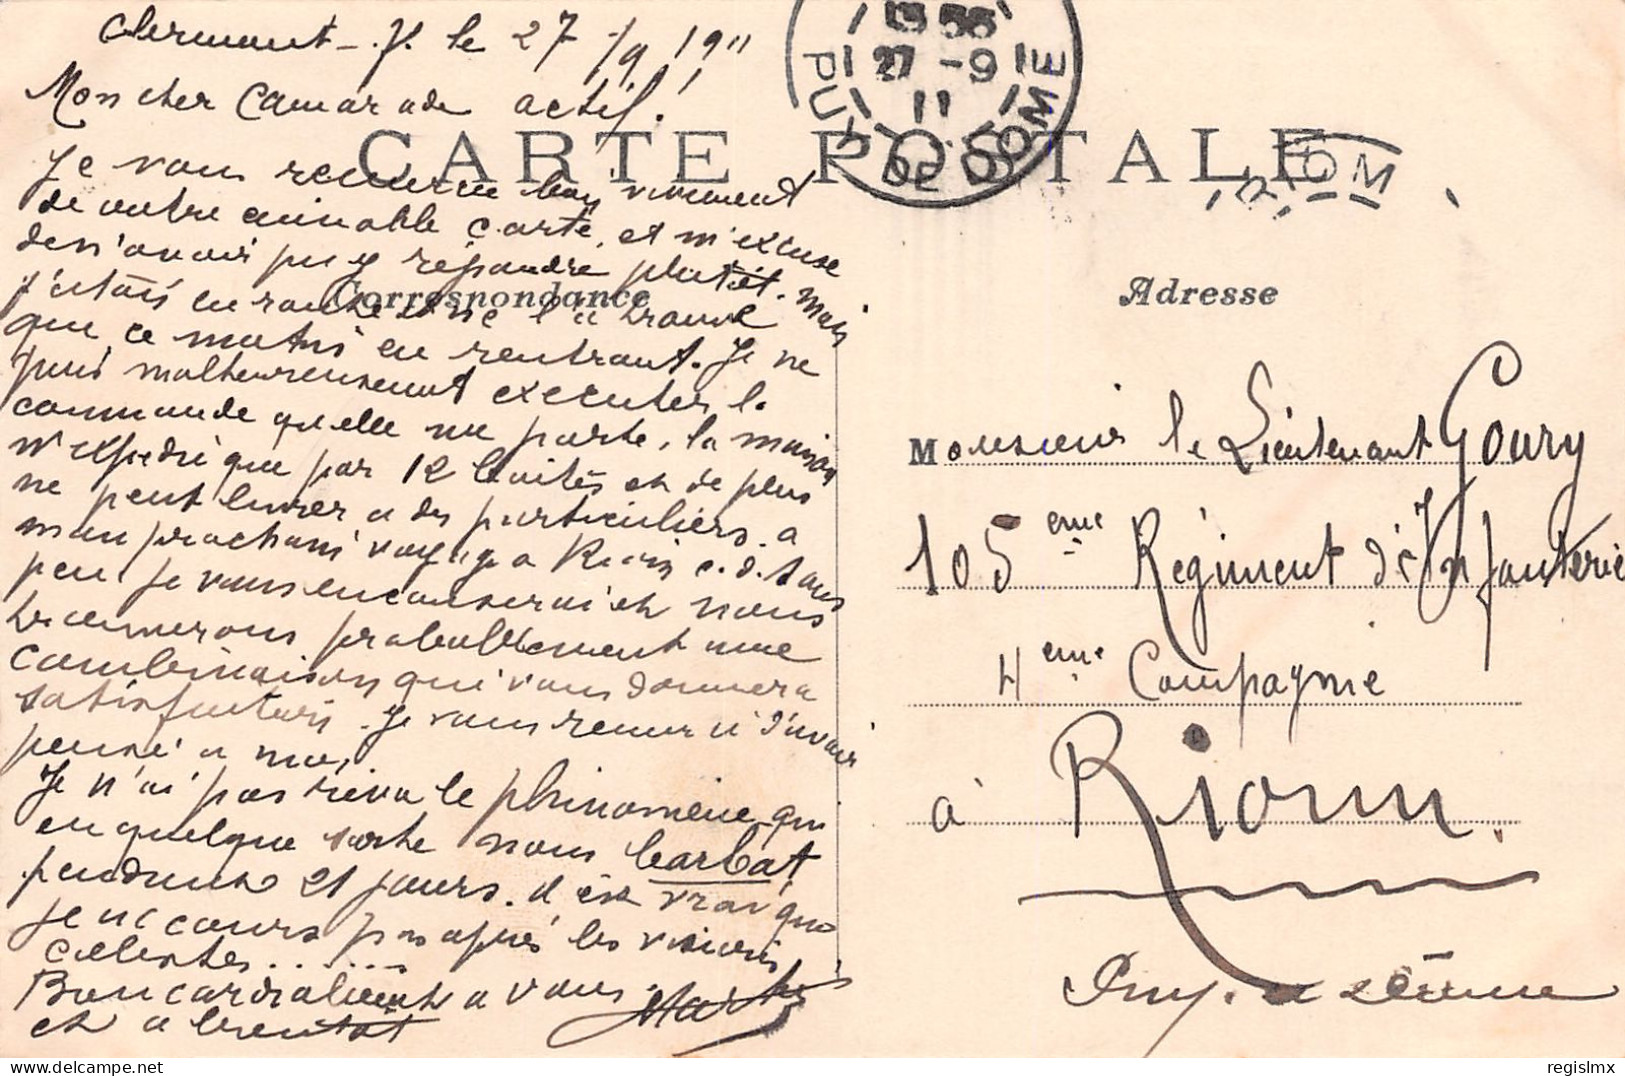 Clermont-F. le 27/9 1911
Mon cher Camarade actif!
CARTE POSTALE
1355
27 -9
11
PUY DE DOME
RIOM
Je vous remercie bien vivement
de votre aimable carte, et m'excuse
de n'avoir pu y répondre plutôt. Mais
Correspondance
j'étais en route et ne l'ai trouvé
que ce matin en rentrant. Je ne
puis malheureusement exécuter la
commande qu'elle me porte, la maison
n'expédie que par 12 boîtes et de plus
ne peut livrer a des particuliers. a
mon prochain voyage a Riom c.d. dans
peu je vous en causerai et nous
trouverons probablement une
combinaison qui vous donnera
satisfaction. Je vous remercie d'avoir
pensé a moi.
Je n'ai pas revu le phénomène qui
en quelque sorte nous barbat
pendant 21 jours. il est vrai que
je ne cours pas après les visions
célestes......
Bien cordialement a vous.
et a bientôt
Adresse
Monsieur le Lieutenant Goury
105eme Régiment d'Infanterie
4eme Compagnie
à Riom.
Puy. de Dôme
regislmx